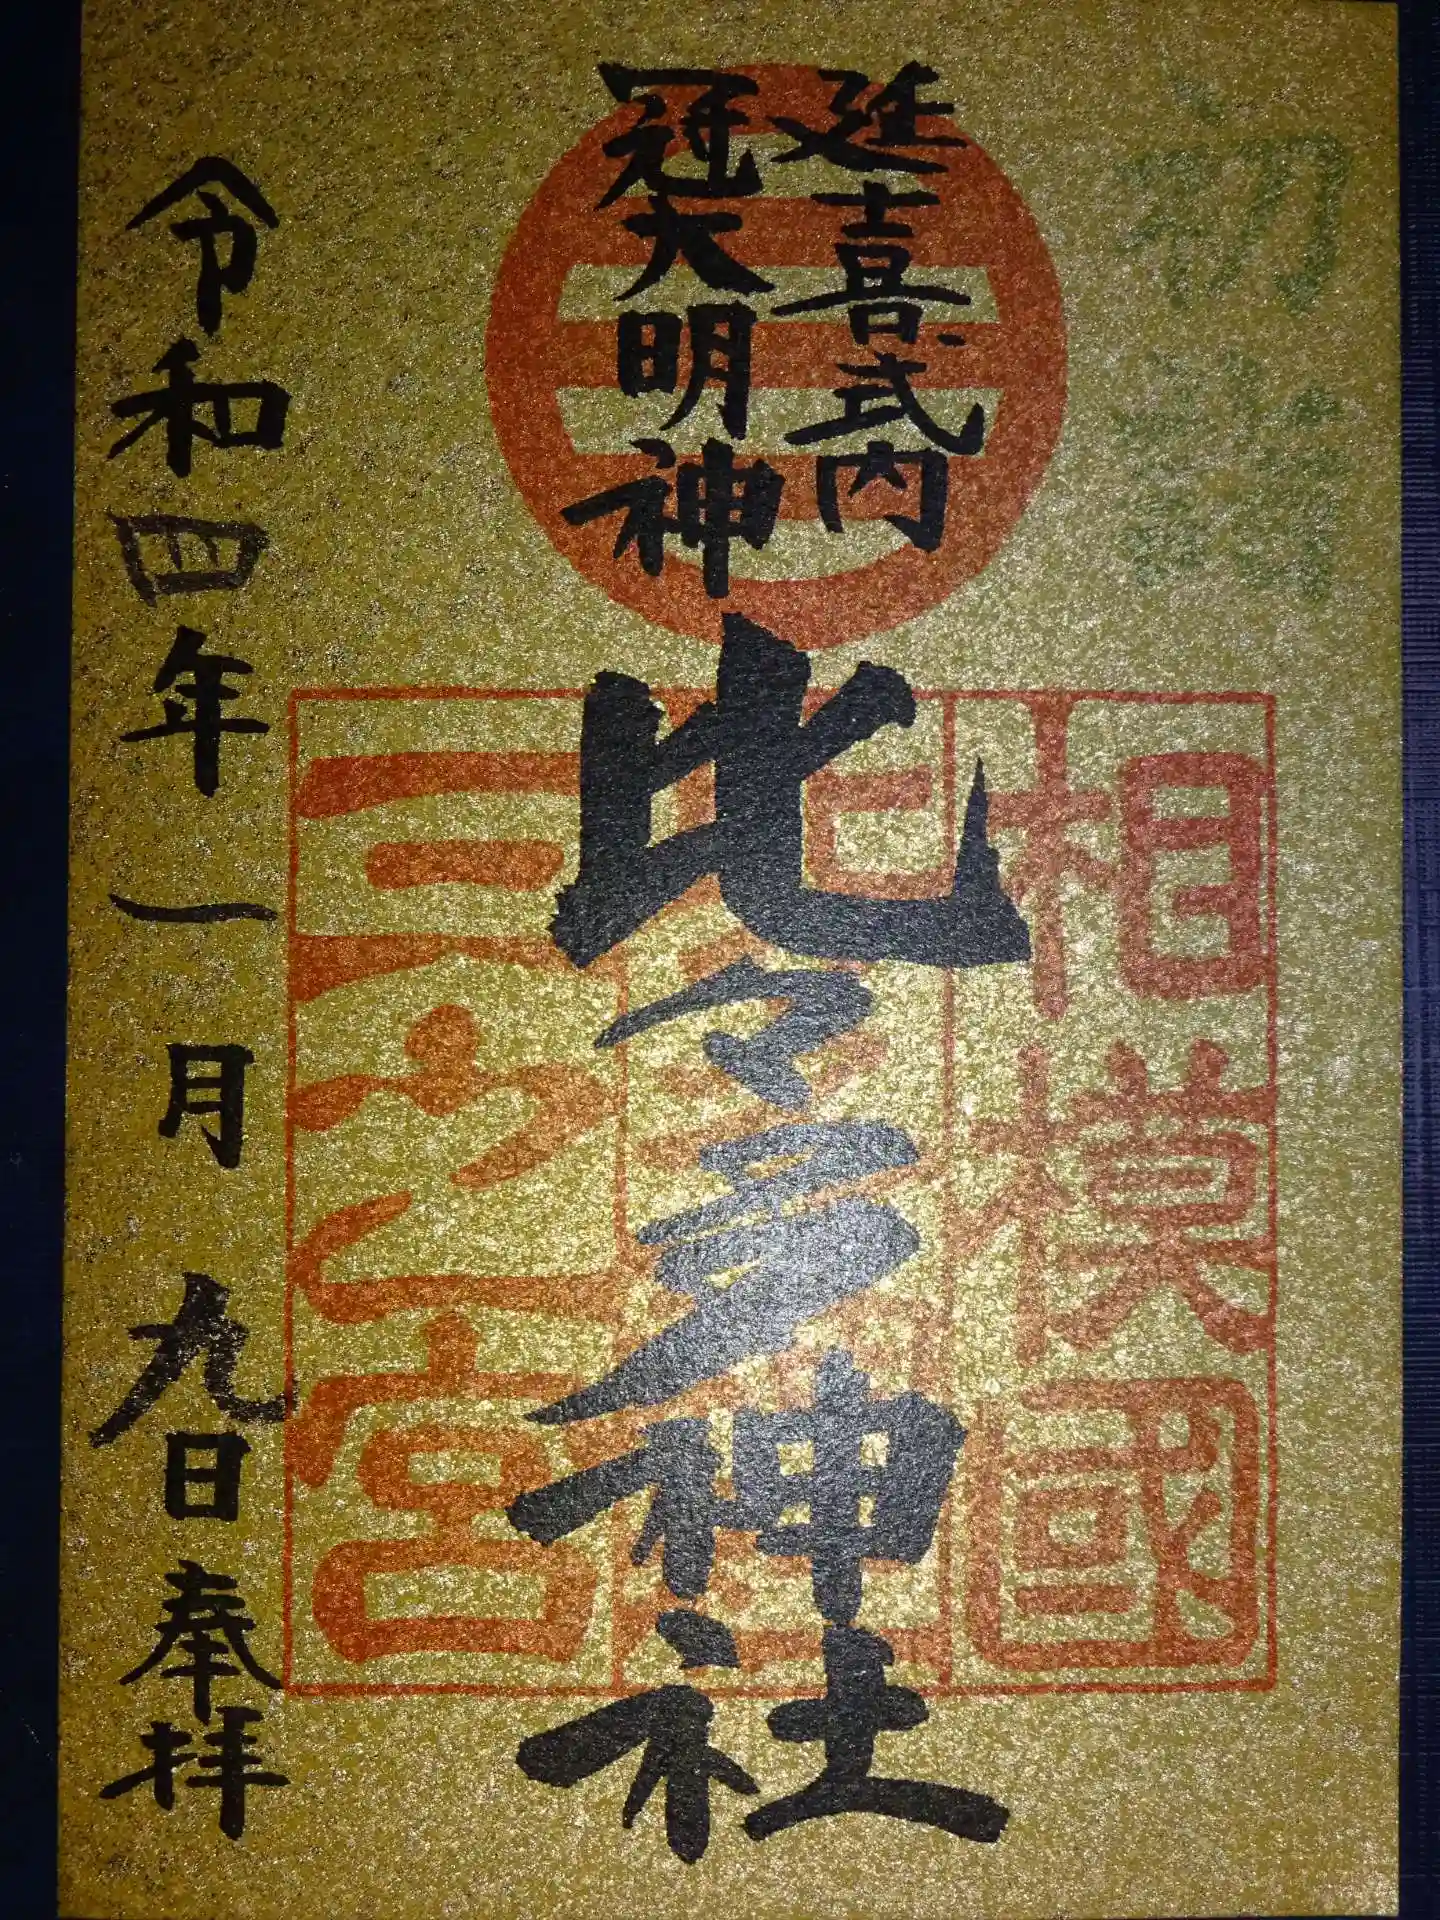 初詣
延喜式内
冠大明神
比々多神社
相模國
三之宮
令和四年一月九日奉拝